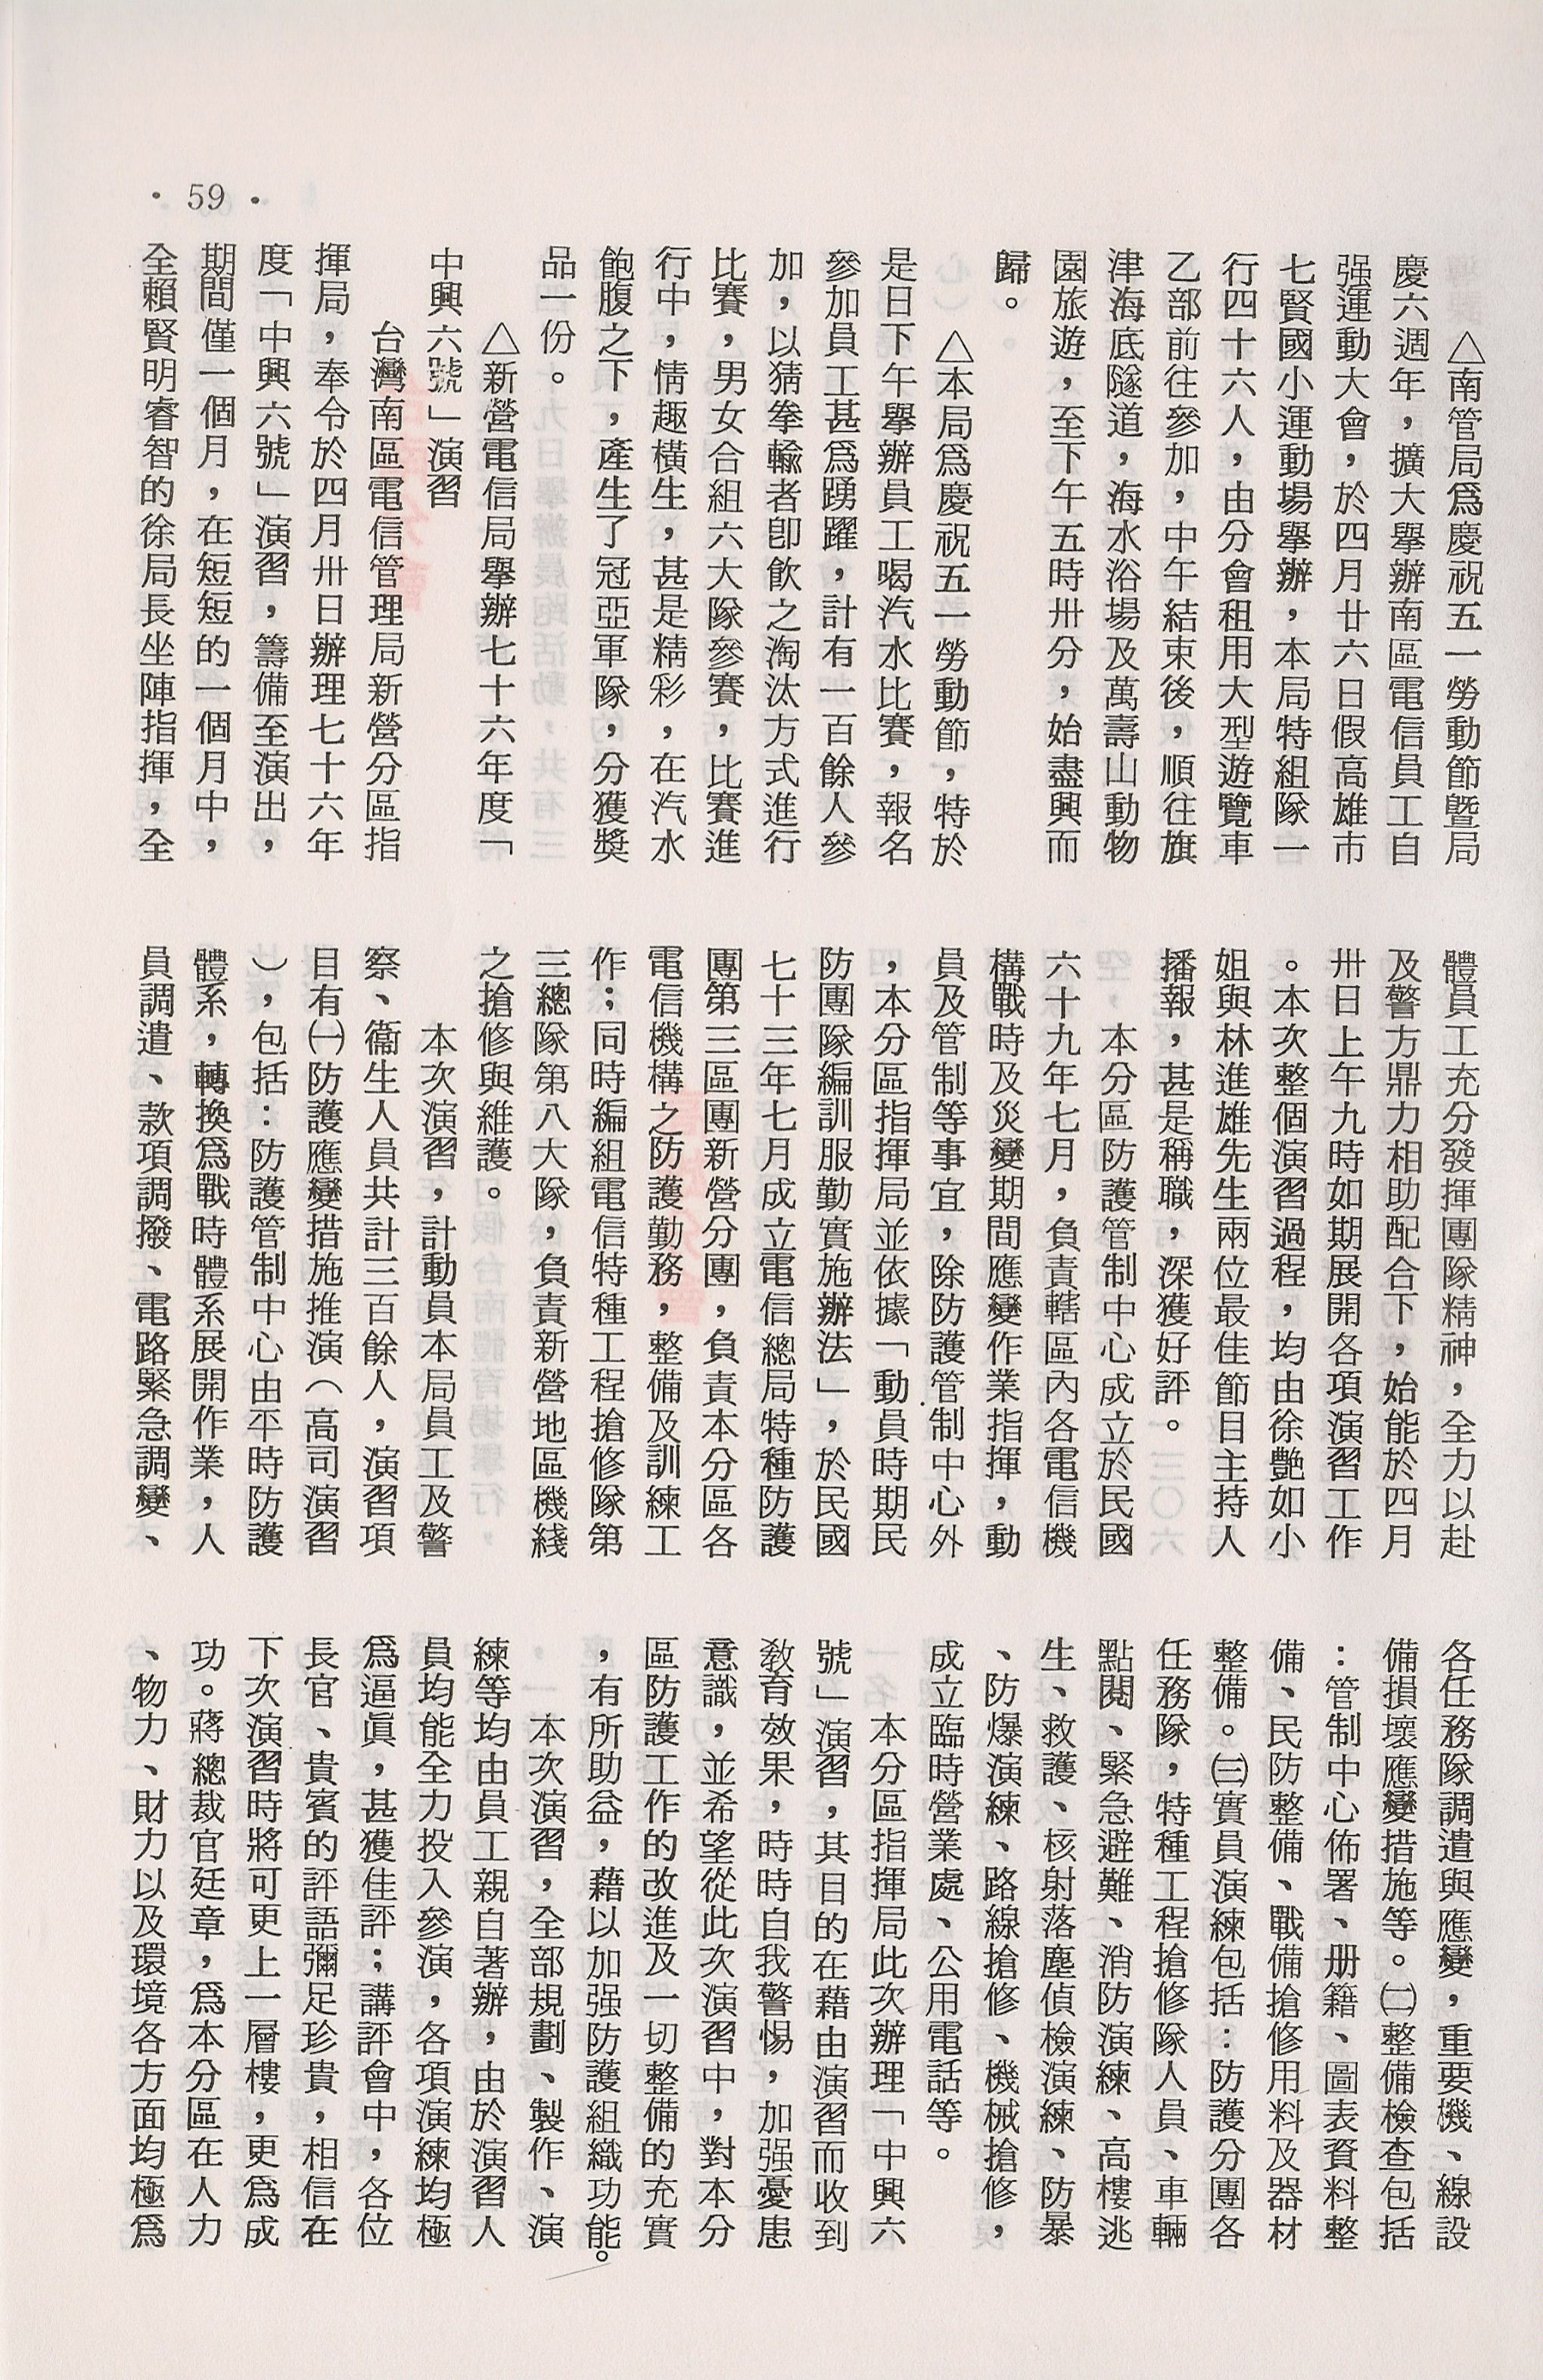 △南管局爲慶祝五一勞動節暨局
慶六週年，擴大舉辦南區電信員工自
强運動大會，於四月廿六日假高雄市
七賢國小運動場舉辦，本局特組隊一
行四十六人，由分會租用大型遊覽車
乙部前往參加，中午結束後，順往旗
津海底隧道，海水浴場及萬壽山動物
園旅遊，至下午五時卅分，始盡興而
歸。
△本局爲慶祝五一勞動節，特於
是日下午舉辦員工喝汽水比賽，報名
參加員工甚爲踴躍，計有一百餘人參
加，以猜拳輸者卽飲之淘汰方式進行
比賽，男女合組六大隊參賽，比賽進
行中，情趣橫生，甚是精彩，在汽水
飽腹之下，產生了冠亞軍隊，分獲獎
品一份。
△新營電信局舉辦七十六年度「
中興六號」演習
台灣南區電信管理局新營分區指
揮局，奉令於四月卅日辦理七十六年
度「中興六號」演習，籌備至演出，
期間僅一個月，在短短的一個月中，
全賴賢明睿智的徐局長坐陣指揮，全
體員工充分發揮團隊精神，全力以赴
及警方鼎力相助配合下，始能於四月
卅日上午九時如期展開各項演習工作
。本次整個演習過程，均由徐艷如小
姐與林進雄先生兩位最佳節目主持人
播報，甚是稱職，深獲好評。
本分區防護管制中心成立於民國
六十九年七月，負責轄區內各電信機
構戰時及災變期間應變作業指揮，動
員及管制等事宜，除防護管制中心外
，本分區指揮局並依據「動員時期民
防團隊編訓服勤實施辦法」，於民國
七十三年七月成立電信總局特種防護
團第三區團新營分團，負責本分區各
電信機構之防護勤務，整備及訓練工
作；同時編組電信特種工程搶修隊第
三總隊第八大隊，負責新營地區機綫
之搶修與維護。
本次演習，計動員本局員工及警
察、衞生人員共計三百餘人，演習項
目有㈠防護應變措施推演（高司演習
），包括：防護管制中心由平時防護
體系，轉換爲戰時體系展開作業，人
員調遣、款項調撥、電路緊急調變、
各任務隊調遣與應變，重要機、線設
備損壞應變措施等。㈡整備檢查包括
：管制中心佈署、册籍、圖表資料整
備、民防整備、戰備搶修用料及器材
整備。㈢實員演練包括：防護分團各
任務隊，特種工程搶修隊人員、車輛
點閱、緊急避難、消防演練、高樓逃
生、救護、核射落塵偵檢演練、防暴
、防爆演練、路線搶修、機械搶修，
成立臨時營業處、公用電話等。
本分區指揮局此次辦理「中興六
號」演習，其目的在藉由演習而收到
敎育效果，時時自我警惕，加强憂患
意識，並希望從此次演習中，對本分
區防護工作的改進及一切整備的充實
，有所助益，藉以加强防護組織功能。
本次演習，全部規劃、製作、演
練等均由員工親自著辦，由於演習人
員均能全力投入參演，各項演練均極
爲逼眞，甚獲佳評；講評會中，各位
長官、貴賓的評語彌足珍貴，相信在
下次演習時將可更上一層樓，更爲成
功。蔣總裁官廷章，爲本分區在人力
、物力、財力以及環境各方面均極爲
• 59 •